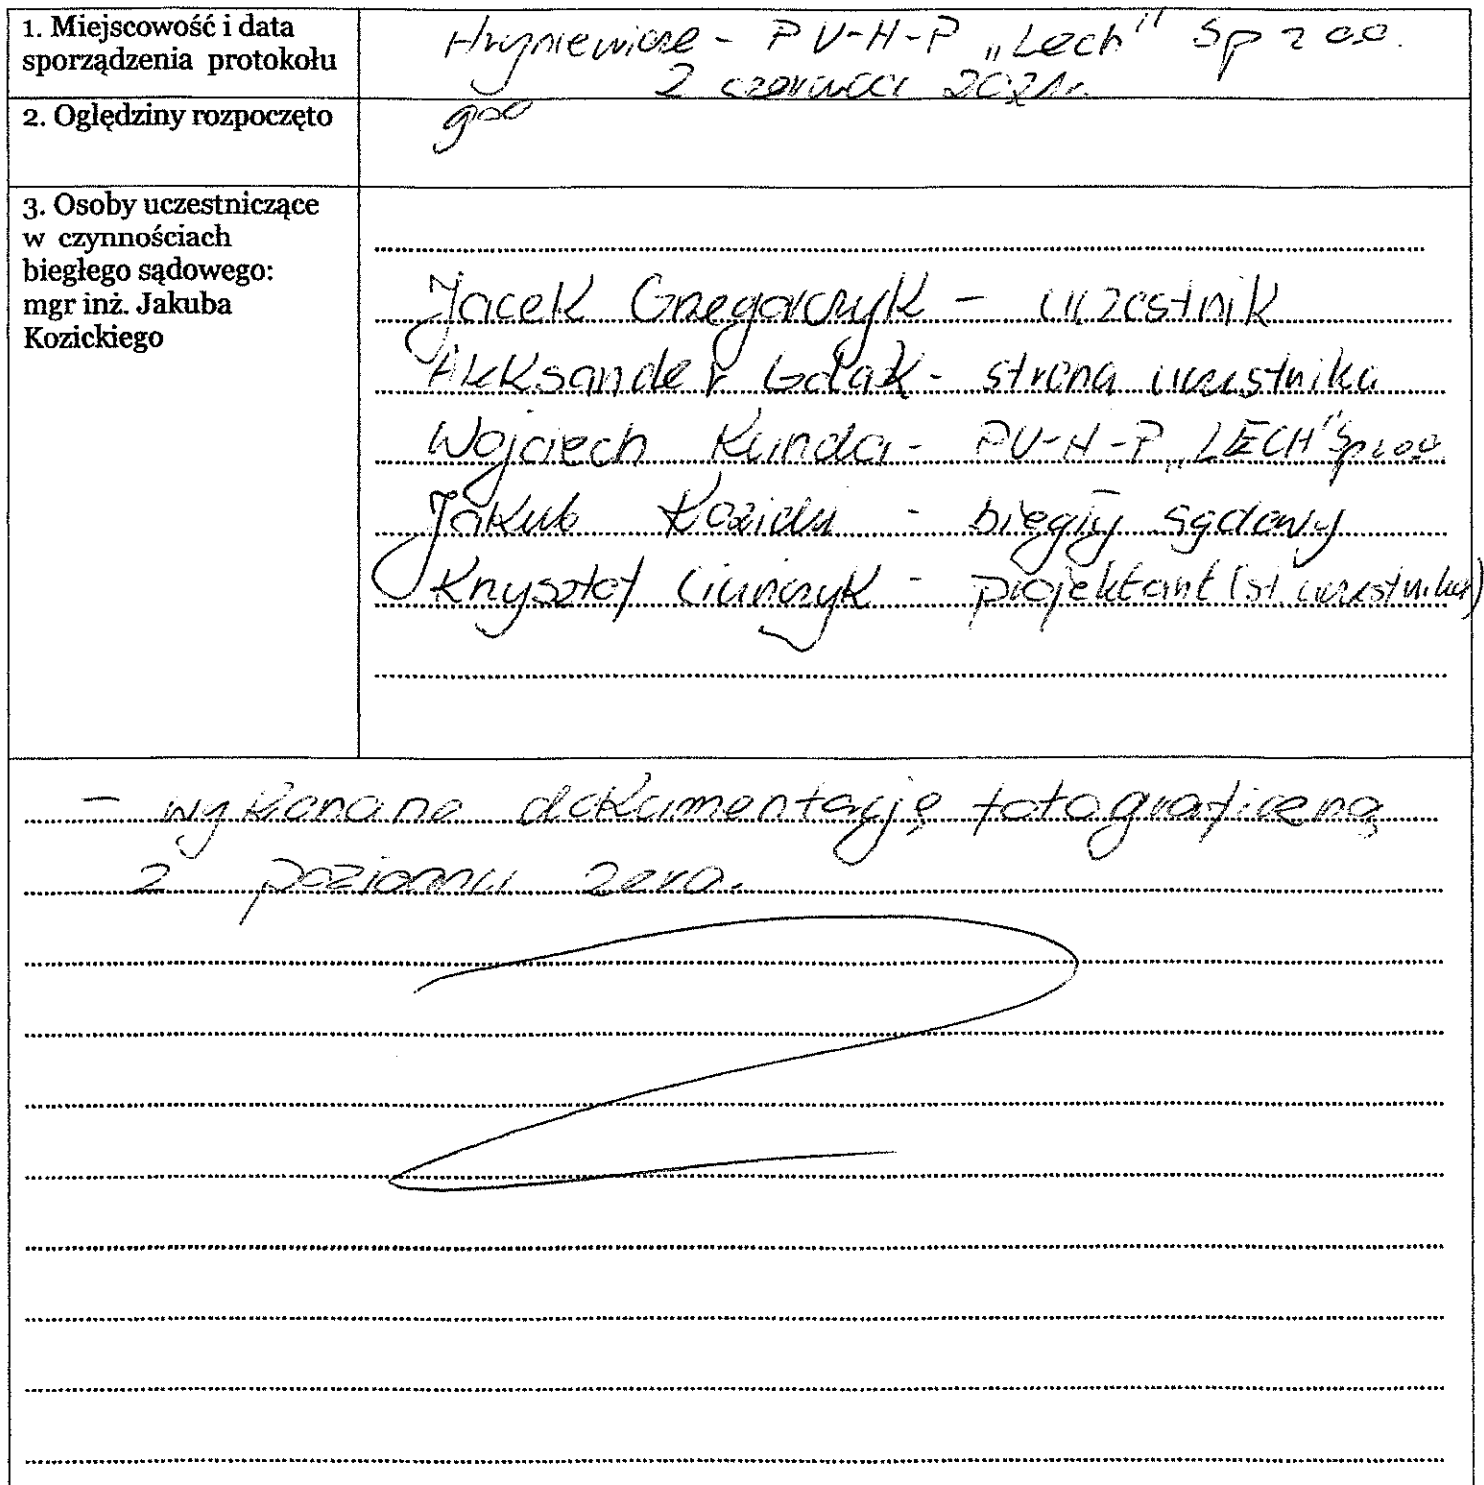 1. Miejscowość i data
sporządzenia protokołu
Hryniewicze - PU-H-P „Lech" Sp z o.o.
2 czerwca 2021r.
2. Oględziny rozpoczęto
9:00
3. Osoby uczestniczące
w czynnościach
biegłego sądowego:
mgr inż. Jakuba
Kozickiego
Jacek Grzegorczyk - uczestnik
Aleksander - strona uczestnika
Wojciech Kunda - PU-H-P „LECH" Sp z o.o.
Jakub Kozicki - biegły sądowy
Krzysztof - projektant (st. uczestnika)
- wykonano dokumentację fotograficzną
z poziomu zero.